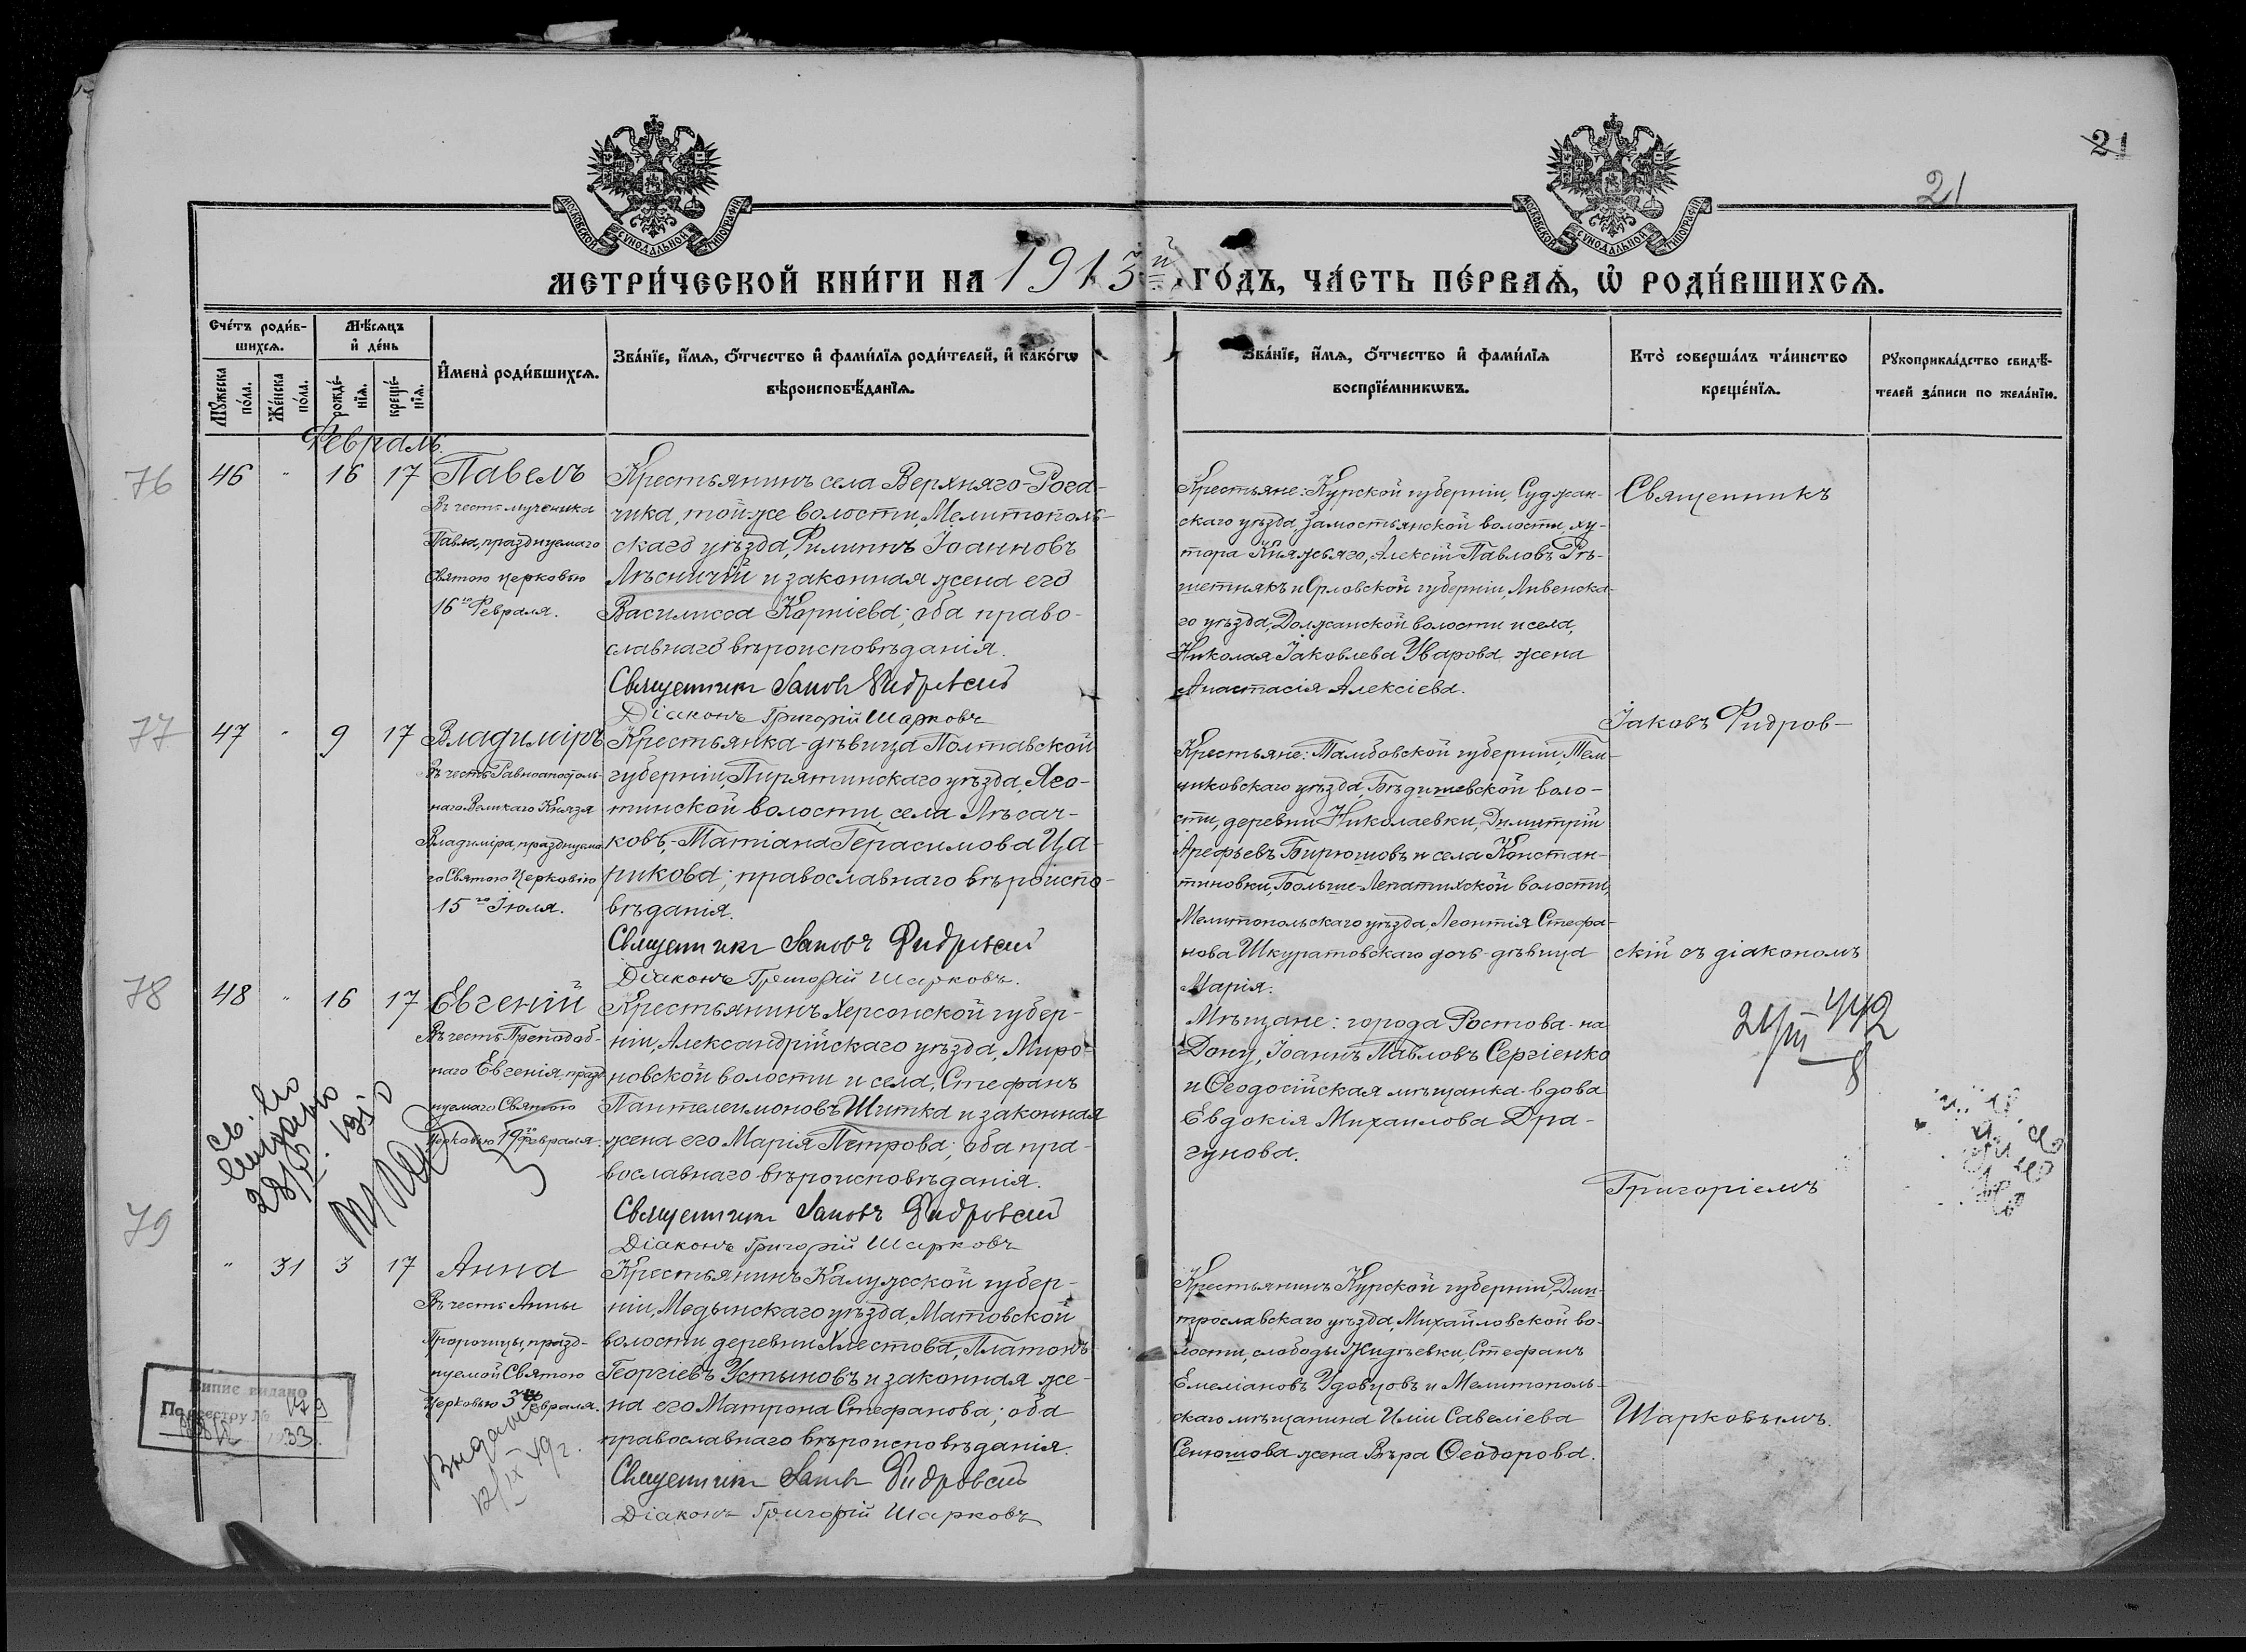 21
21
МОСКОВСКОЙ СѴНОДАЛЬНОЙ ТИПОГРАФІИ
МОСКОВСКОЙ СѴНОДАЛЬНОЙ ТИПОГРАФІИ
МЕТРИ́ЧЕСКОЙ КНИ́ГИ НА 1913й ГО́ДЪ, ЧА́СТЬ ПЕ́РВАѦ, Ѡ҆ РОДИ́ВШИХСѦ.
Сче́тъ роди́в-
шихсѧ.
Мѣ́сѧцъ
и҆ де́нь
Мꙋ́жеска
по́ла.
Же́нска
по́ла.
рожде́-
нїѧ.
креще́-
нїѧ.
И҆мена̀ роди́вшихсѧ.
Зва́нїе, и҆́мѧ, ѻ҆́тчество и҆ фами́лїѧ роди́телей, и҆ како́гѡ
вѣроисповѣ́данїѧ.
Зва́нїе, и҆́мѧ, ѻ҆́тчество и҆ фами́лїѧ
воспрїе́мникѡвъ.
Кто̀ соверша́лъ та́инство
креще́нїѧ.
Рꙋкоприкла́дство свидѣ́-
телей за́писи по жела́нїю.
Февраль.
76
46 " 16 17
Павелъ
Въ честь мученика
Павла, празднуемаго
Святою церковью
16го Февраля.
Крестьянинъ села Верхняго-Рога-
чика, той же волости, Мелитополь-
скаго уѣзда, Филиппъ Іоанновъ
Лѣсничій и законная жена его
Василисса Корніева; оба право-
славнаго вѣроисповѣданія.
Священникъ Іаковъ Фидровскій
Діаконъ Григорій Шарковъ
Крестьяне: Курской губерніи, Суджан-
скаго уѣзда, Замостьянской волости, ху-
тора Княжьяго, Алексій Павловъ Рѣ-
шетнякъ и Орловской губерніи, Ливенска-
го уѣзда, Должанской волости и села,
Николая Іаковлева Уварова жена
Анастасія Алексіева.
Священникъ
77
47 " 9 17
Владиміръ
Въ честь Равноапостоль-
наго Великаго Князя
Владиміра, празднуема-
го Святою Церковію
15го Іюля.
Крестьянка-дѣвица Полтавской
губерніи, Пирятинскаго уѣзда, Яго-
тинской волости, села Лѣсач-
ковъ, - Татіана Герасимова Ца-
рикова; православнаго вѣроиспо-
вѣданія.
Священникъ Іаковъ Фидровскій
Діаконъ Григорій Шарковъ.
Крестьяне: Тамбовской губерніи, Тем-
никовскаго уѣзда, Бѣдишевской воло-
сти, деревни Николаевки, Димитрій
Арефьевъ Бирюшовъ и села Констан-
тиновки, Больше-Лепатихской волости,
Мелитопольскаго уѣзда, Леонтія Стефа-
нова Шкуратовскаго дочь-дѣвица
Марія.
Іаковъ Фидров-
скій съ діакономъ
78
48 " 16 17
Евгеній
Въ честь Преподоб-
наго Евгенія, празд-
нуемаго Святою
Церковью 19го Февраля.
Крестьянинъ Херсонской губер-
ніи, Александрійскаго уѣзда, Миро-
новской волости и села, Стефанъ
Пантелеимоновъ Шитка и законная
жена его Марія Петрова; оба пра-
вославнаго вѣроисповѣданія.
Священникъ Іаковъ Фидровскій
Діаконъ Григорій Шарковъ
Мѣщане: города Ростова-на-
Дону, Іоаннъ Павловъ Сергіенко
и Ѳеодосійская мѣщанка-вдова
Евдокія Михаилова Дра-
гунова.
Григоріемъ
79
" 31 3 17
Анна
Въ честь Анны
Пророчицы, празд-
нуемой Святою
Церковью 3го Февраля.
Крестьянинъ Калужской губер-
ніи, Медынскаго уѣзда, Матовской
волости деревни Хлестова, Платонъ
Георгіевъ Устьновъ и законная же-
на его Матрона Стефанова; оба
православнаго вѣроисповѣданія.
Священникъ Іаковъ Фидровскій
Діаконъ Григорій Шарковъ
Крестьянинъ Курской губерніи, Дми-
трославскаго уѣзда, Михайловской во-
лости, слободы Жидѣевки, Стефанъ
Емеліановъ Удовцовъ и Мелитополь-
скаго мѣщанина Иліи Савеліева
Сенюшова жена Вѣра Ѳеодорова.
Шарковымъ.
Випис видано
По реестру № 179
33
Выдано
12/IX 49г.